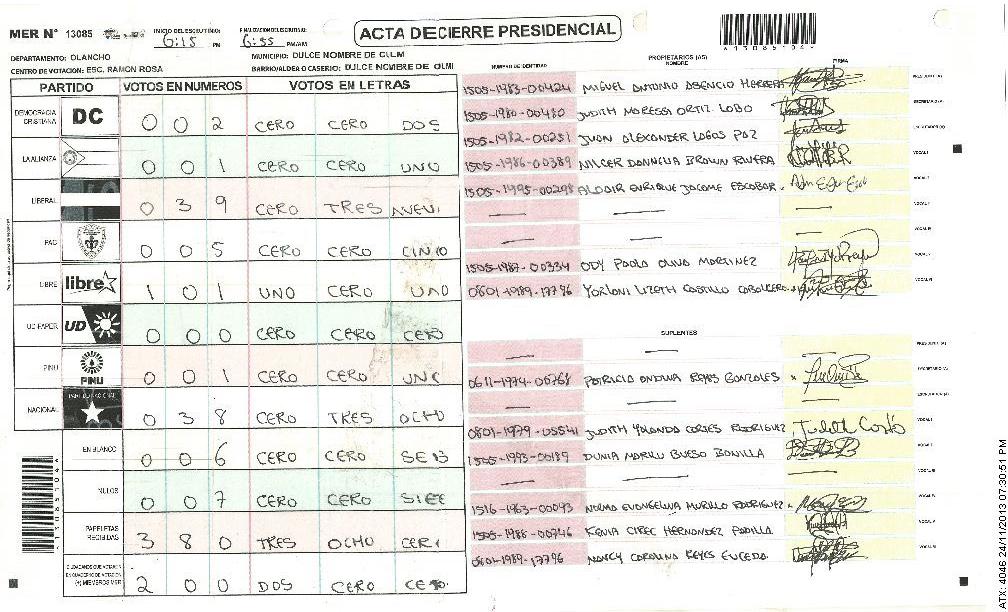 MER N° 13085
INICIO DEL ESCRUTINIO: 6:15 PM
FINALIZACION ESCRUTINIO: 6:55 PM/AM
ACTA DE CIERRE PRESIDENCIAL
DEPARTAMENTO: OLANCHO
MUNICIPIO: DULCE NOMBRE DE CULMI
CENTRO DE VOTACION: ESC. RAMON ROSA
BARRIO/ALDEA O CASERIO: DULCE NOMBRE DE CULMI
PARTIDO VOTOS EN NUMEROS VOTOS EN LETRAS
DEMOCRACIA CRISTIANA DC 0 0 2 CERO CERO DOS
LA ALIANZA 0 0 1 CERO CERO UNO
LIBERAL 0 3 9 CERO TRES NUEVE
PAC 0 0 5 CERO CERO CINCO
LIBRE libre 1 0 1 UNO CERO UNO
UD-FAPER UD 0 0 0 CERO CERO CERO
PINU PINU 0 0 1 CERO CERO UNO
NACIONAL PARTIDO NACIONAL 0 3 8 CERO TRES OCHO
EN BLANCO 0 0 6 CERO CERO SEIS
NULOS 0 0 7 CERO CERO SIETE
PAPELETAS RECIBIDAS 3 8 0 TRES OCHO CERO
CIUDADANOS QUE VOTARON EN CUADERNO DE VOTACION (+) MIEMBROS MER 2 0 0 DOS CERO CERO
NUMERO DE IDENTIDAD PROPIETARIOS (AS) NOMBRE FIRMA
1505-1983-00424 MIGUEL ANTONIO ASENCIO HERRERA PRESIDENTE(A)
1505-1980-00480 JUDITH NORESSI ORTIZ LOBO SECRETARIO(A)
1505-1982-00251 JUAN ALEXANDER LAGOS PAZ ESCRUTADOR(A)
1505-1986-00389 NILCER DANNELIA BROWN RIVERA VOCAL I
1505-1995-00298 ALDAIR ENRIQUE JACOME ESCOBAR VOCAL II
— — — VOCAL III
— — VOCAL IV
1505-1987-00334 ODY PAOLO OLIVA MARTINEZ VOCAL V
0801-1989-17796 YORLANI LIZETH CASTILLO CABALLERO VOCAL VI
SUPLENTES
— — PRESIDENTE (A)
0611-1974-00768 PATRICIA ONDINA REYES GONZALES SECRETARIO(A)
— — ESCRUTADOR(A)
0801-1979-05541 JUDITH YOLANDA CORTES RODRIGUEZ Judith Cortés VOCAL I
1505-1993-00189 DUNIA MARILU BUESO BONILLA VOCAL II
— — — VOCAL III
1516-1963-00093 NORMA EVANGELINA MURILLO RODRIGUEZ VOCAL IV
1505-1988-00746 KENIA CIREC HERNANDEZ PADILLA VOCAL V
0801-1989-17796 NANCY CAROLINA REYES EUCEDA VOCAL VI
ATX: 4046 24/11/2013 07:30:51 PM